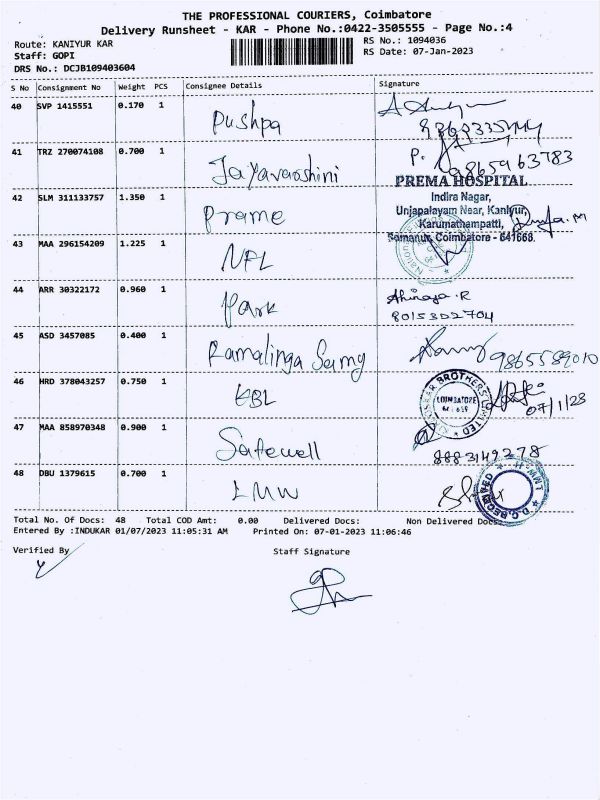 THE PROFESSIONAL COURIERS, Coimbatore
Delivery Runsheet - KAR - Phone No.:0422-3505555 - Page No.:4
Route: KANIYUR KAR
RS No.: 1094036
Staff: GOPI
RS Date: 07-Jan-2023
DRS No.: DCJB109403604
S No Consignment No Weight PCS Consignee Details Signature
40 SVP 1415551 0.170 1 Pushpa
41 TRZ 270074108 0.700 1 Jayavarshini P. 9865963783
42 SLM 311133757 1.350 1 Prame
PREMA HOSPITAL
Indira Nagar,
Unjapalayam Near, Kaniyur,
Karumathampatti,
Samanur, Coimbatore - 641668.
43 MAA 296154209 1.225 1 NFL
44 ARR 30322172 0.960 1 Park
8015302704
45 ASD 3457085 0.400 1 Ramalinga Samy 9865589010
46 HRD 378043257 0.750 1 KBL
BROTHERS LIMITED
COIMBATORE
07/1/23
47 MAA 858970348 0.900 1 Safewell 8883149278
48 DBU 1379615 0.700 1 LMW
D.C. RECEIVED
Total No. Of Docs: 48 Total COD Amt: 0.00 Delivered Docs: Non Delivered Docs:
Entered By :INDUKAR 01/07/2023 11:05:31 AM Printed On: 07-01-2023 11:06:46
Verified By
Staff Signature